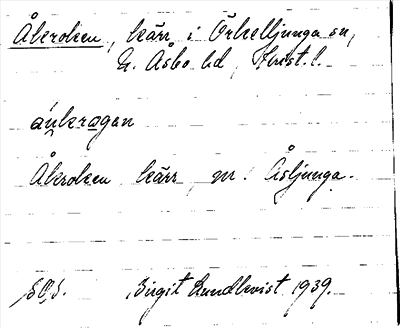 Åkroken, kärr i Örkelljunga sn,
N. Åsbo hd, Krist. l.
áu̯kragan
Åkroken kärr, nr. Åsljunga.
Birgit Lundkvist 1939.